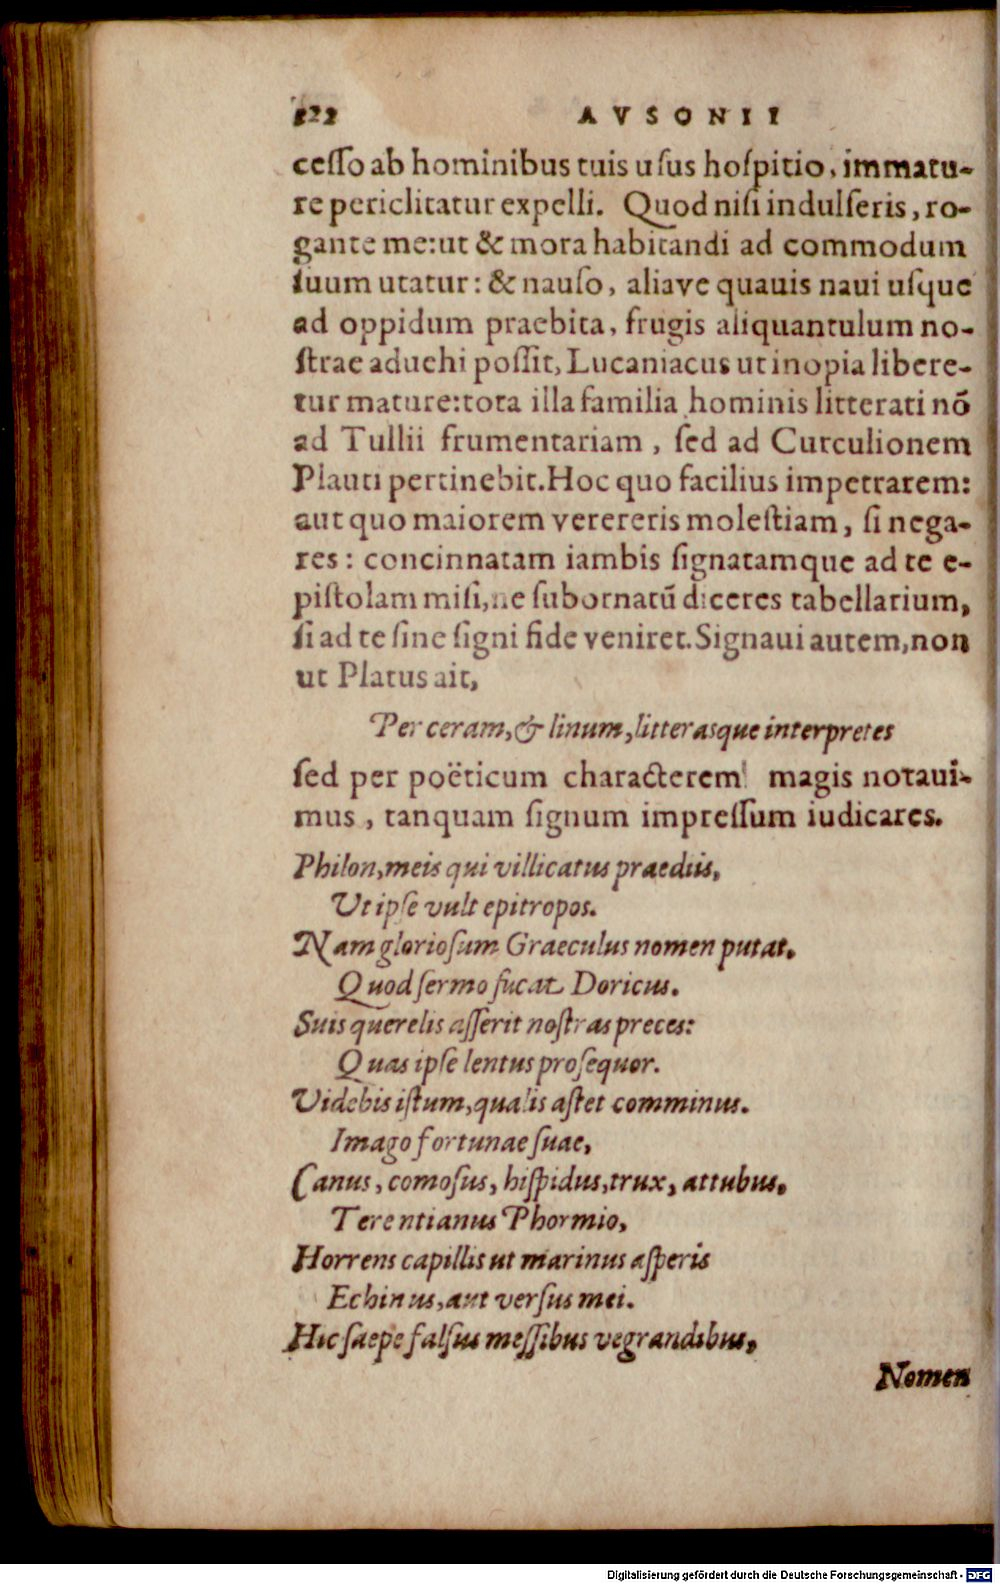 122 AVSONII
ceſſo ab hominibus tuis uſus hoſpitio, immatu-
re periclitatur expelli. Quod niſi indulſeris, ro-
gante me: ut & mora habitandi ad commodum
ſuum utatur: & nauſo, aliave quauis naui uſque
ad oppidum praebita, frugis aliquantulum no-
ſtrae aduehi poſſit, Lucaniacus ut inopia libere-
tur mature: tota illa familia hominis litterati nõ
ad Tullii frumentariam, ſed ad Curculionem
Plauti pertinebit. Hoc quo facilius impetrarem:
aut quo maiorem verereris moleſtiam, ſi nega-
res: concinnatam iambis ſignatamque ad te e-
piſtolam miſi, ne ſubornatũ diceres tabellarium,
ſi ad te ſine ſigni fide veniret. Signaui autem, non
ut Platus ait,
Per ceram, & linum, litterasque interpretes
ſed per poëticum characterem magis notaui-
mus, tanquam ſignum impreſſum iudicares.
Philon, meis qui villicatus praediis,
Ut ipſe vult epitropos.
Nam glorioſum Graeculus nomen putat.
Quod ſermo fucat Doricus.
Suis querelis aſſerit noſtras preces:
Quas ipſe lentus proſequor.
Videbis iſtum, qualis aſtet comminus.
Imago fortunae ſuae,
Canus, comoſus, hiſpidus, trux, attubus,
Terentianus Phormio,
Horrens capillis ut marinus aſperis
Echinus, aut verſus mei.
Hic ſaepe falſus meſſibus vegrandibus,
Nomen
Digitalisierung gefördert durch die Deutsche Forschungsgemeinschaft - DFG